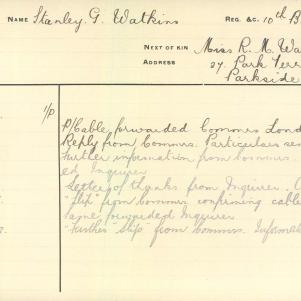 NAME Stanley. G. Watkins REG. &C. 10th B
NEXT OF KIN Miss R. M. Wa
AND ADDRESS 27. Park Terr
Parkside
I/P
P/Cable forwarded Commrs Lond
Reply from Commrs. Particulars sen
Further information from Commrs.
ed Inquirer
Letter of thanks from Inquirer. C
"Slip" from Commrs confirming cable
same forwarded Inquirer
"Further "slip" from Commrs. Informat